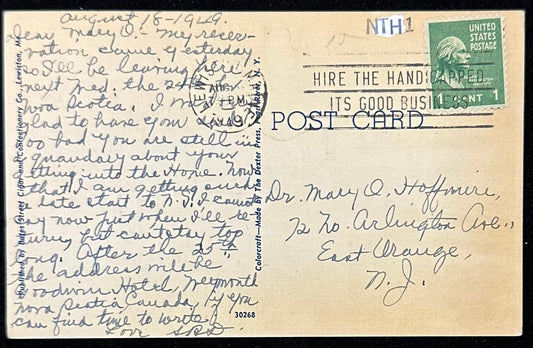 August 18-1949.
Dear Mary O:- My reser-
vation came yesterday
so I'll be leaving here
next Wed. the 24th for
Nova Scotia. I'm
glad to have your
too bad you are still in a
quandary about your
getting into the Home. Now
that I am getting such
a late start to N.S. I cannot
say now just when I'll re-
turn, but can't stay too
long. After the 25th
the address will be
Goodwin Hotel, Weymouth
Nova Scotia, Canada, if you
can find time to write.
Love
Published by Bates Street Cigar and Confectionery Co., Lewiston, Me.
Colorcraft—Made by The Dexter Press, Pearl River, N. Y.
30268
NTH1
LEWISTON
AUG
PM
1949
HIRE THE HANDICAPPED
ITS GOOD BUSINESS
UNITED
STATES
POSTAGE
1 CENT 1
POST CARD
Dr. Mary O. Hoffmire,
72 No. Arlington Ave.,
East Orange,
N.J.